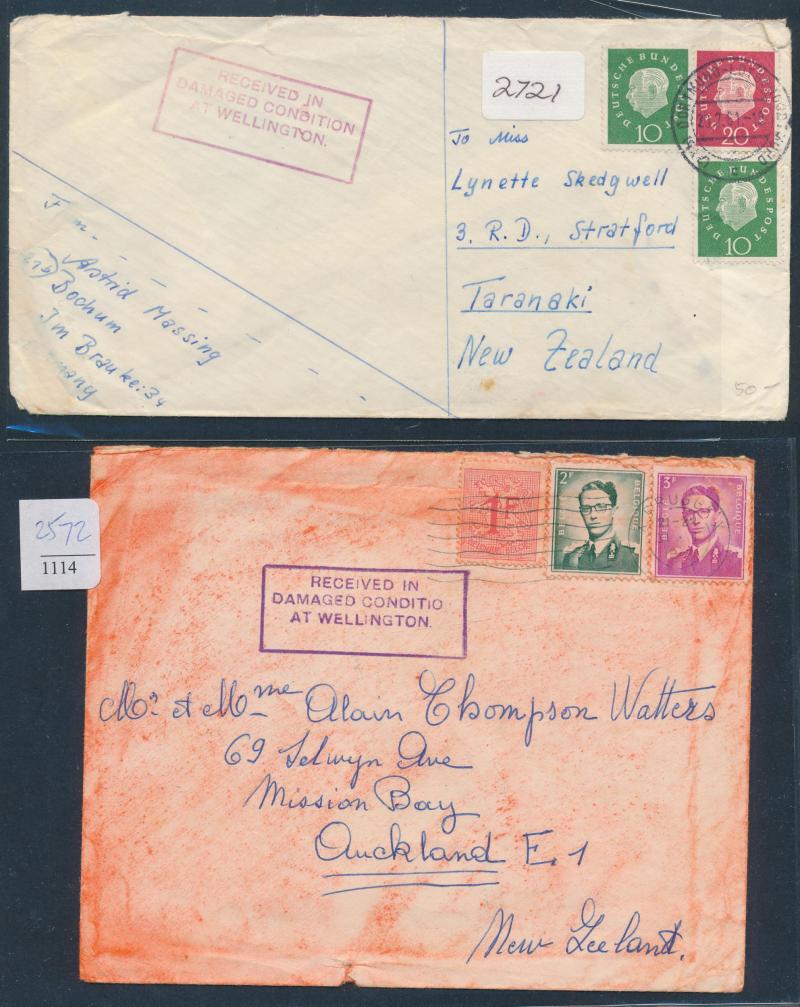 RECEIVED IN
DAMAGED CONDITION
AT WELLINGTON.
2721
DEUTSCHE BUNDESPOST
10
DEUTSCHE BUNDESPOST
20
DEUTSCHE BUNDESPOST
10
To Miss
Lynette Skedgwell
3. R. D., Stratford
Taranaki
New Zealand
Astrid Massing
Bochum
Im Brauke: 34
50-
2572
1114
1F
2F
BELGIQUE
3F
BELGIQUE
RECEIVED IN
DAMAGED CONDITIO
AT WELLINGTON.
Mr et Mme Alain Thompson Watters
69 Selwyn Ave
Mission Bay
Auckland E. 1
New Zeeland.